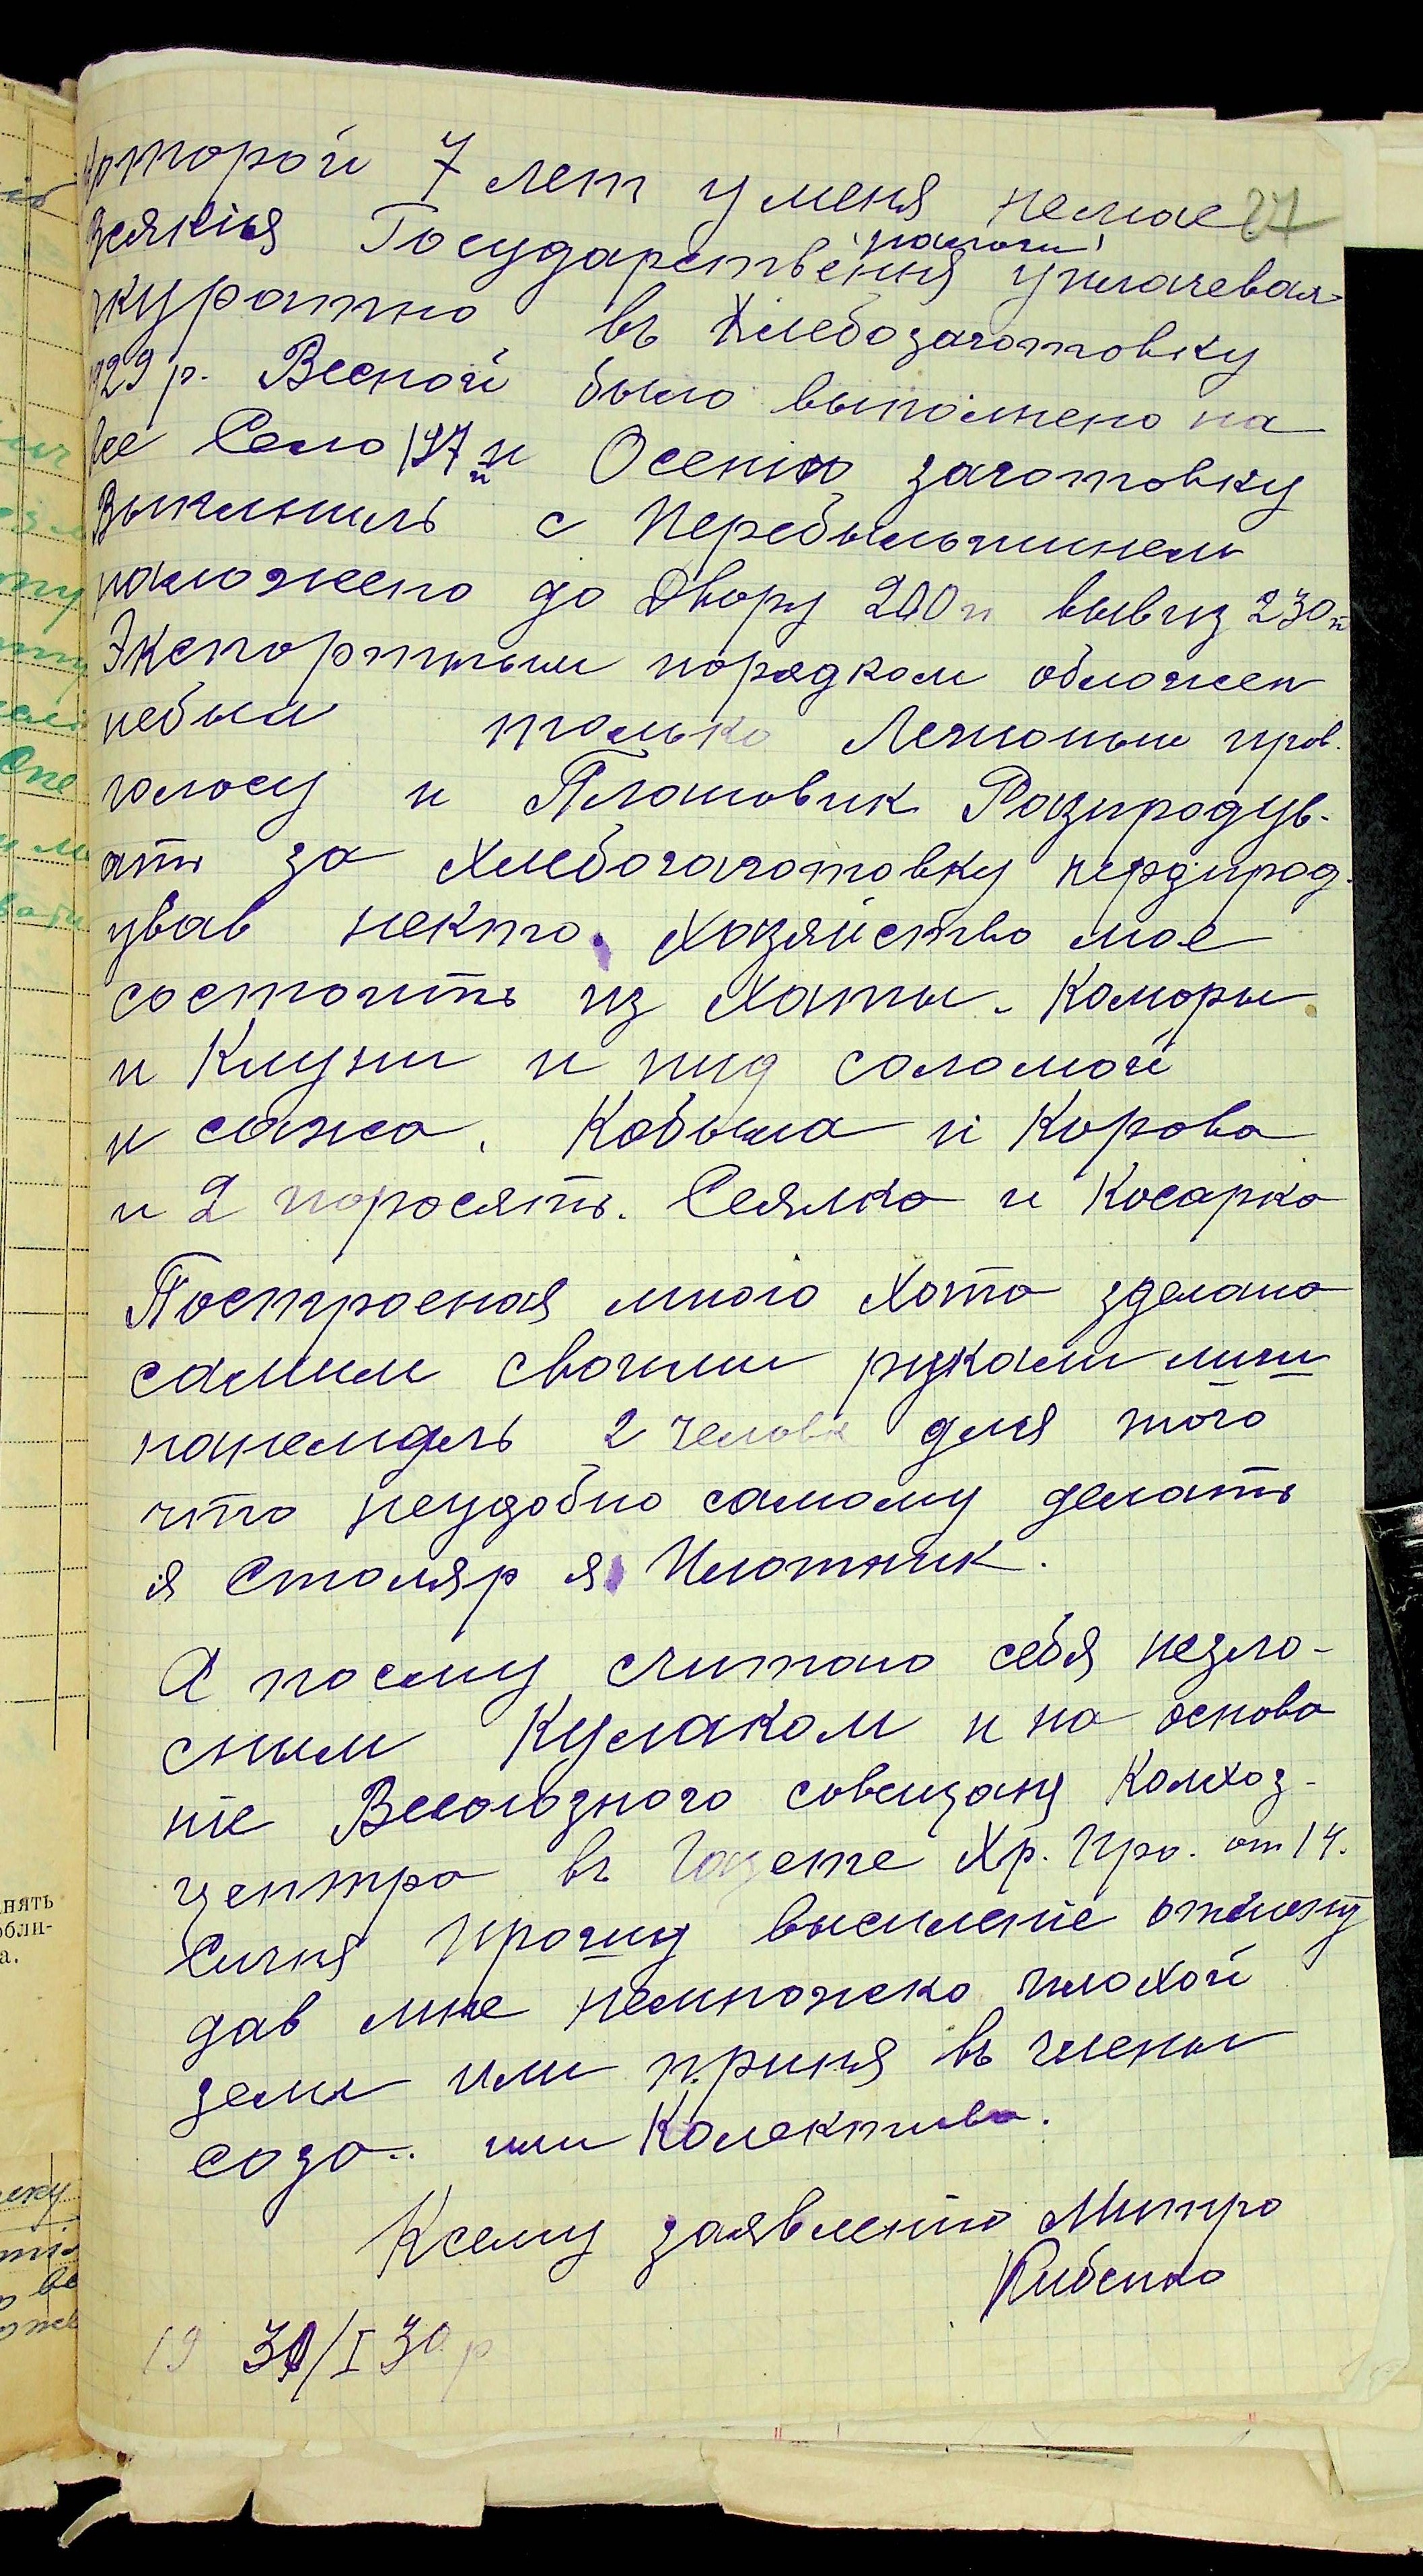 которой 7 лет у меня немае 27
Всякия Государствення налоги уплачевал
акуратно въ Хлебозаготовку
1929 р. Весной было выполнено на
все Село 197 п Осеню заготовку
Выпълнилъ с Перебольшинем
наложено до двору 200 п вывиз 230 п
Экспортным порядком обложен
небыл только
голосу и Розпродув-
ать за хлебозаготовку нерозпрод-
ував некто. Хазяйство мое
состоить из хаты. Коморы
и Клуни и пид соломой
и сажа. Кобыла и Корова
и 2 поросять. Сеялка и Косарка
Построеная мною Хата зделана
самим своими руками
2 человек для того
что неудобно самому делать
я Столяр я Плотник.
А посему считаю себя незло-
сным Кулаком и на основа
ние Всесоюзного совещаня Колхоз-
центра въ Газете Хр. Про. от 14.
Сичня выселение
дав мне немножско плохой
земли или приня въ члены
созо.. или Колектива.
Ксему заявлению Митро
19 30/I 30 р
анять
обли-
а.